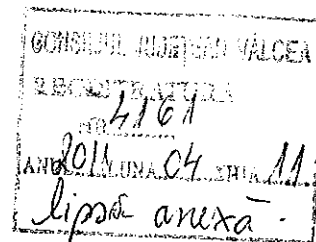 CONSILIUL JUDEȚEAN VÂLCEA
REGISTRATURA
NR. 4161
ANUL 2011 LUNA 04 ZIUA 11
lipsă anexă.